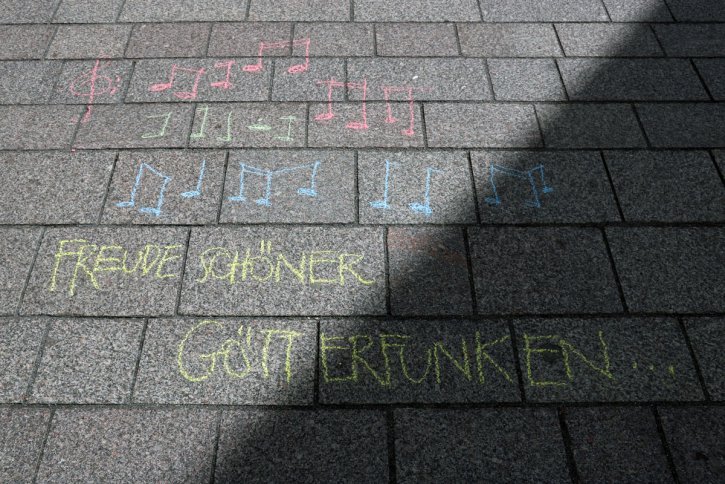 FREUDE SCHÖNER
GÖTTERFUNKEN...